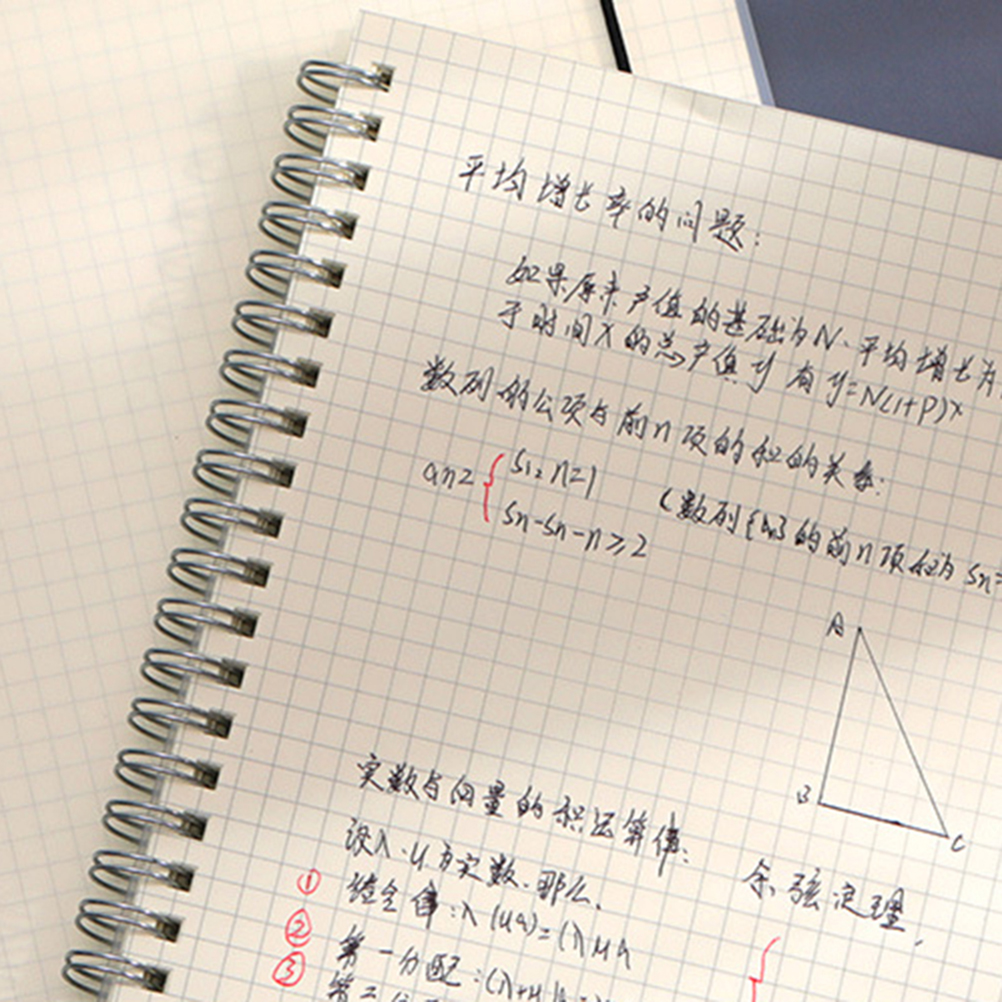 平均增长率的问题:
如果原来产值的基础为N.平均增长为
于时间X的总产值y有y=N(1+P)x
数列的公项与前n项的和的关系:
an= { S1, n=1
Sn-Sn-n≥2
(数列{an}的前n项和为Sn=
A
B
C
实数与向量的积运算律:
设λ.μ为实数.那么.
① 结合律:λ(μa)=(λμa
② 第一分配:(λ+μ
③ 第二
余弦定理,